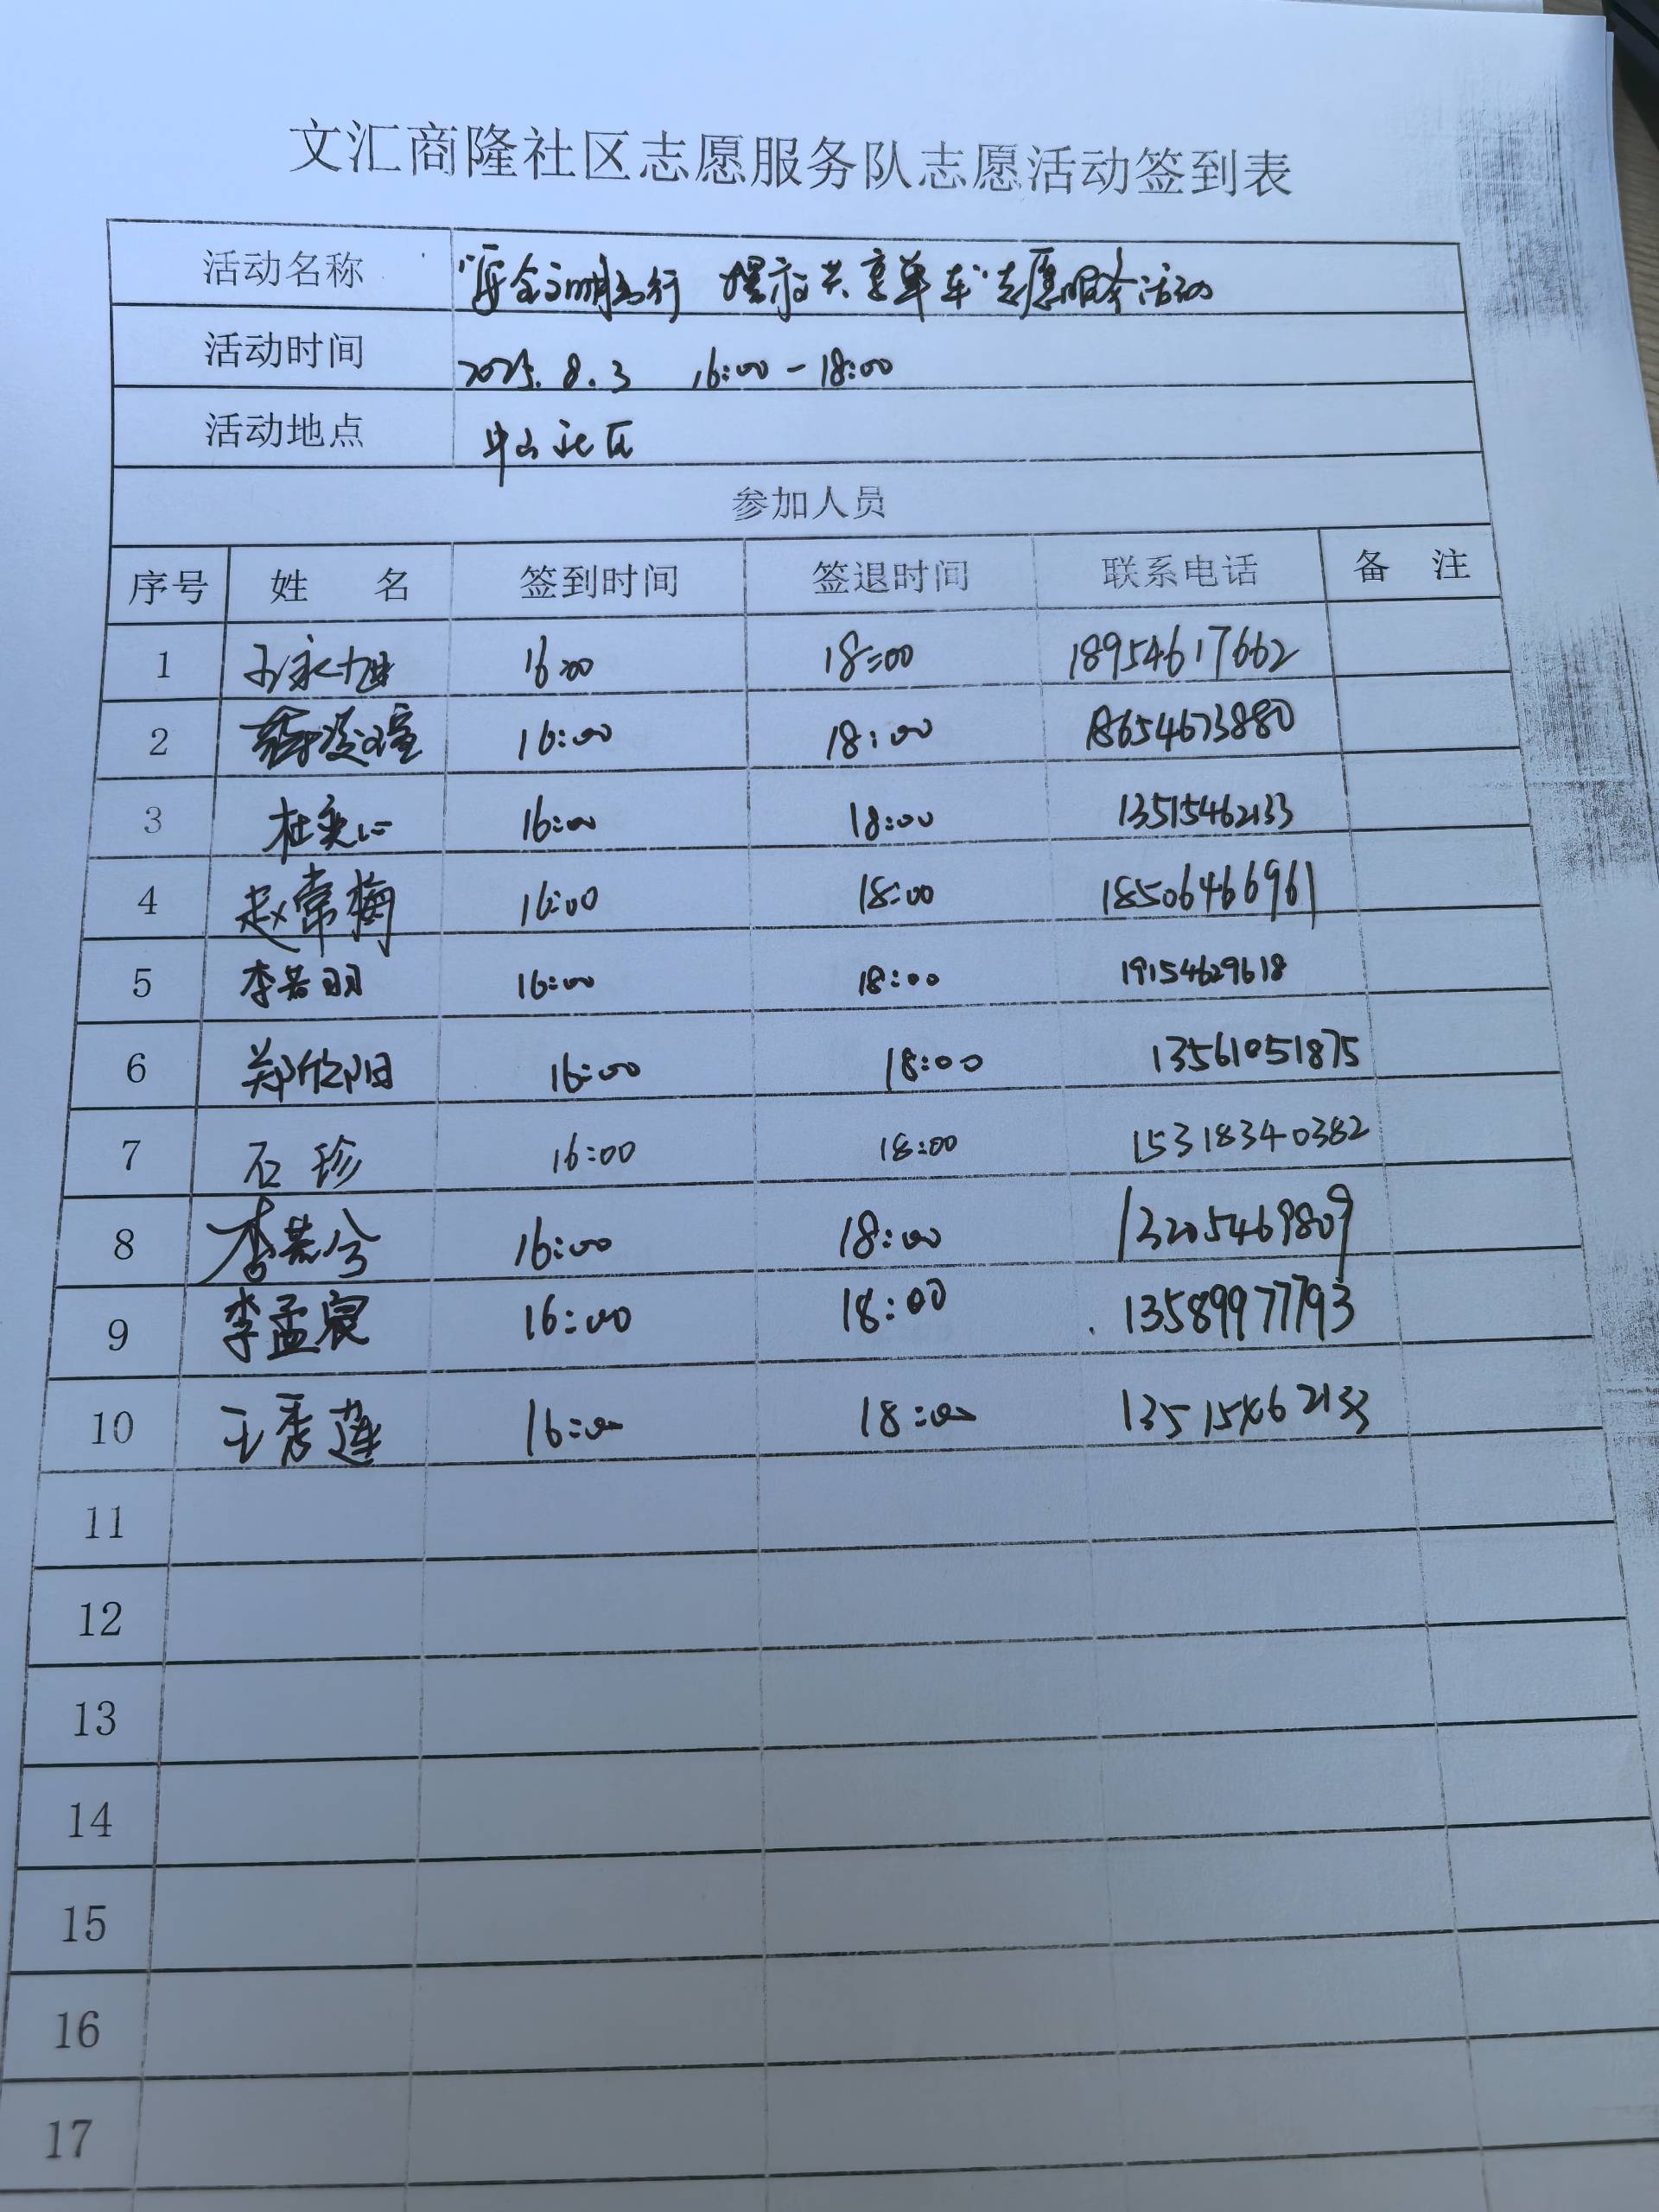 文汇商隆社区志愿服务队志愿活动签到表
活动名称 “安全文明出行 摆放共享单车”志愿服务活动
活动时间 2025.8.3 16:00-18:00
活动地点 中山社区
参加人员
序号 姓 名 签到时间 签退时间 联系电话 备 注
1 王永旭 16:00 18:00 18954617662
2 16:00 18:00 18654673880
3 杜奕心 16:00 18:00 13515462133
4 赵常梅 16:00 18:00 18506466961
5 李若羽 16:00 18:00 19154629618
6 郑欣阳 16:00 18:00 13561051875
7 石珍 16:00 18:00 15318340382
8 李若兮 16:00 18:00 13205469809
9 李孟宸 16:00 18:00 13589977793
10 王秀莲 16:00 18:00 13515462133
11
12
13
14
15
16
17